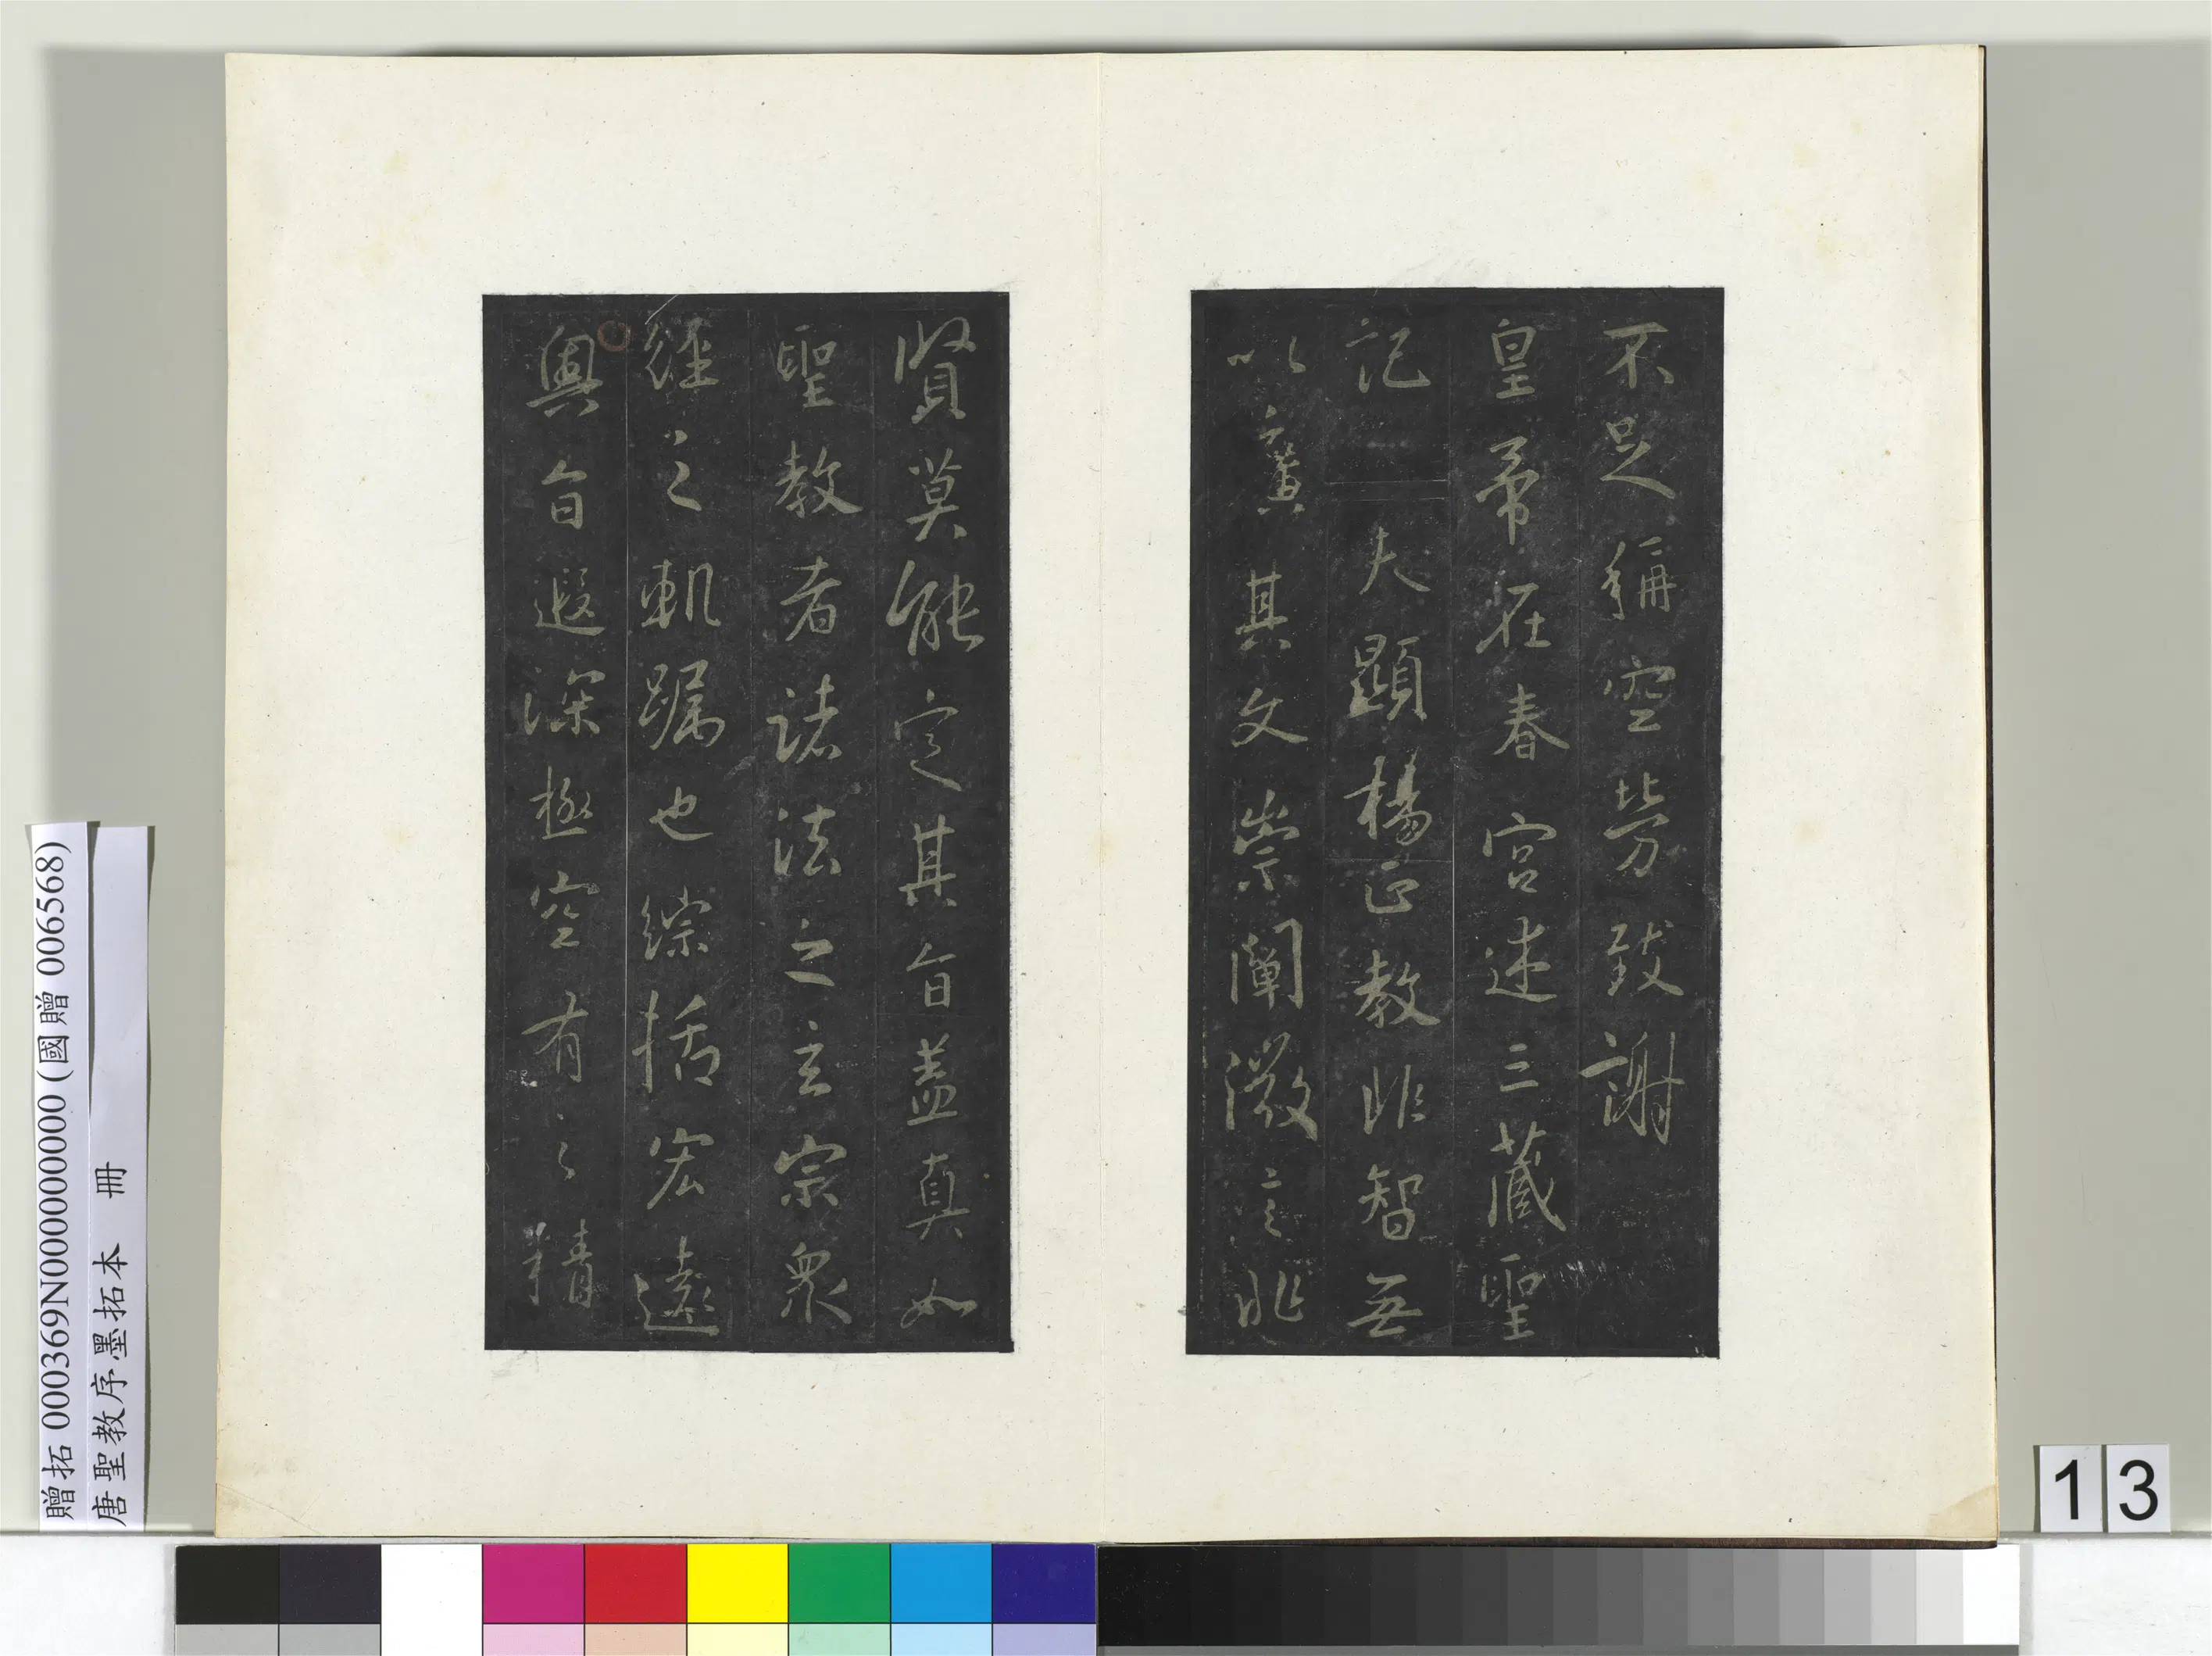 不足稱空勞致謝
皇帝在春宮述三藏聖
記 夫顯楊正教非智無
以廣其文崇闡微言非
賢莫能定其旨蓋真如
聖教者諸法之玄宗眾
經之軌躅也綜括宏遠
奧旨遐深極空有之精
贈拓 000369N000000000 (國贈 006568)
唐聖教序墨拓本 冊
13